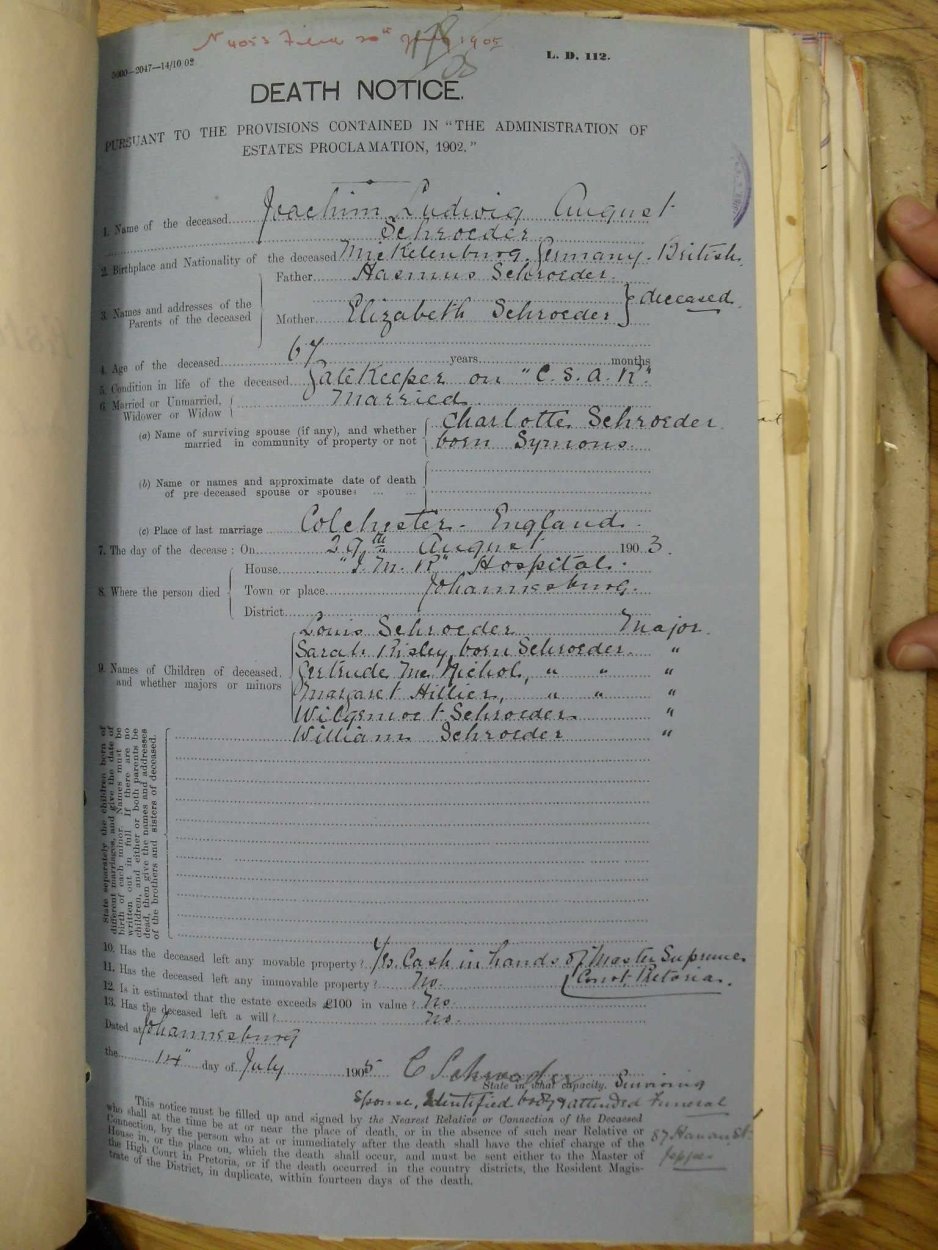 N 4053 Filed 20th July 1905
5000—2047—14/10 02
L. D. 112.
DEATH NOTICE.
PURSUANT TO THE PROVISIONS CONTAINED IN "THE ADMINISTRATION OF
ESTATES PROCLAMATION, 1902."
1. Name of the deceased Joachim Ludwig August
Schroeder
2. Birthplace and Nationality of the deceased Mecklenburg, Germany. British.
3. Names and addresses of the Parents of the deceased
Father Hasmus Schroeder
Mother Elizabeth Schroeder } deceased
4. Age of the deceased 67 years months
5. Condition in life of the deceased GateKeeper on "C. S. A. R".
6. Married or Unmarried, Widower or Widow Married
(a) Name of surviving spouse (if any), and whether married in community of property or not
Charlotte Schroeder
born Symons.
(b) Name or names and approximate date of death
of pre deceased spouse or spouses ... ...
(c) Place of last marriage Colchester - England.
7. The day of the decease : On 29th August 1903.
8. Where the person died
House "J. M. R" Hospital.
Town or place Johannesburg.
District
9. Names of Children of deceased, and whether majors or minors
Louis Schroeder Major.
Sarah Risley born Schroeder "
Gertrude McNichol, " " "
Margaret Hillier, " " "
Schroeder "
William Schroeder "
State separately the children born of
different marriages, and give the date of
birth of each minor. Names must be
written out in full. If there are no
children, and either or both parents be
dead, then give the names and addresses
of the brothers and sisters of deceased.
10. Has the deceased left any movable property? Yes. Cash in hands of Master Supreme
Court Pretoria.
11. Has the deceased left any immovable property? No.
12. Is it estimated that the estate exceeds £100 in value? No.
13. Has the deceased left a will? No.
Dated at Johannesburg
the 14th day of July 1905 C Schroeder
State in what capacity. Surviving
Spouse, Identified body & attended Funeral
This notice must be filled up and signed by the Nearest Relative or Connection of the Deceased
who shall at the time be at or near the place of death, or in the absence of such near Relative or
Connection, by the person who at or immediately after the death shall have the chief charge of the
House in, or the place on, which the death shall occur, and must be sent either to the Master of
the High Court in Pretoria, or if the death occurred in the country districts, the Resident Magis-
trate of the District, in duplicate, within fourteen days of the death.
87 St
Jeppes